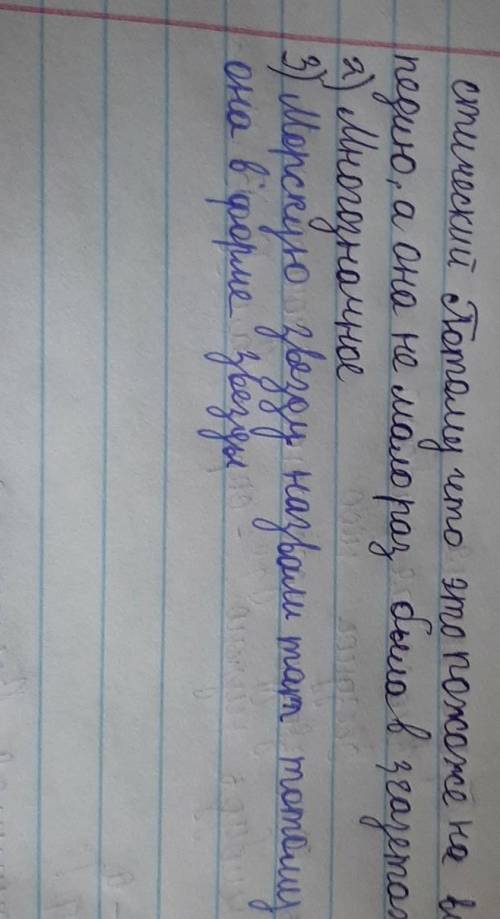 стический Потому что это похоже на в
педию, а она не мало раз была в згазетах
2) Многозначное
3) Морскую звезду назвали так потому
она в форме звезды